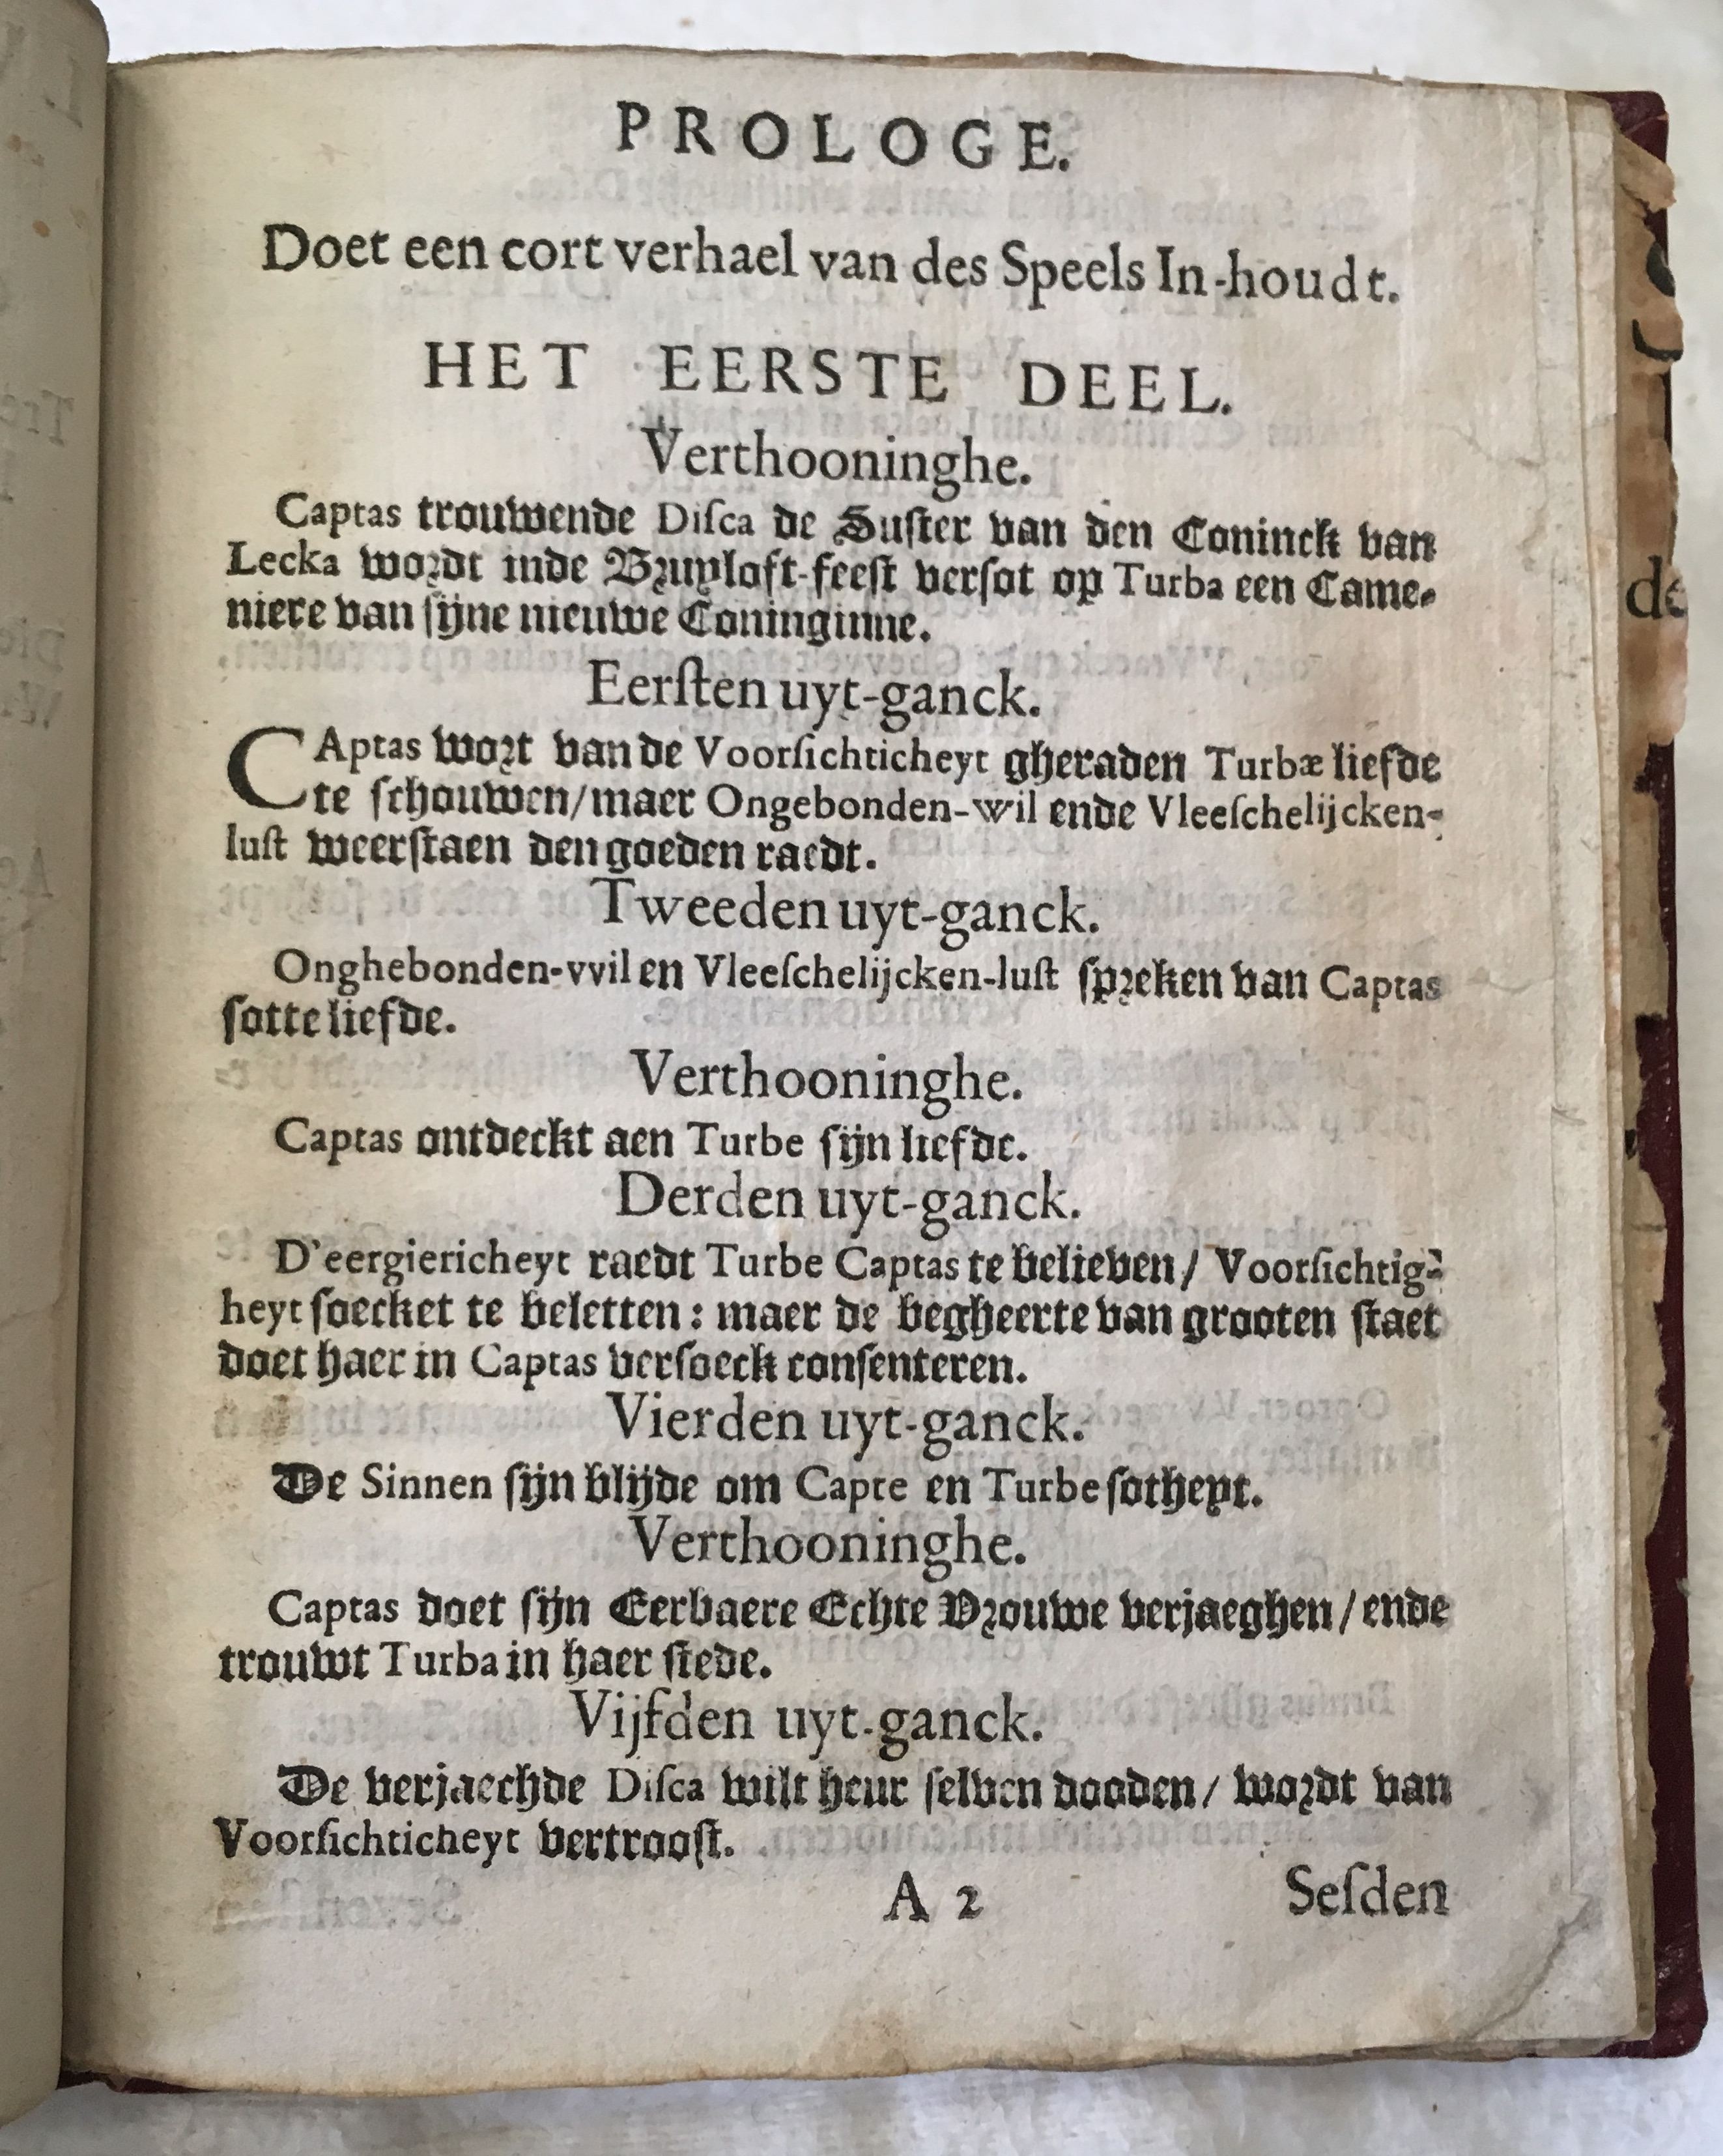 PROLOGE.
Doet een cort verhael van des Speels In-houdt.
HET EERSTE DEEL.
Verthooninghe.
Captas trouwende Diſca de Suſter van den Coninck van
Lecka wordt inde Bruyloft-feeſt verſot op Turba een Came-
niere van ſijne nieuwe Coninginne.
Eerſten uyt-ganck.
CAptas wort van de Voorſichticheyt gheraden Turbæ liefde
te ſchouwen/maer Ongebonden-wil ende Vleeſchelijcken-
luſt weerſtaen den goeden raedt.
Tweeden uyt-ganck.
Onghebonden-vvil en Vleeſchelijcken-luſt ſpreken van Captas
ſotte liefde.
Verthooninghe.
Captas ontdeckt aen Turbe ſijn liefde.
Derden uyt-ganck.
D'eergiericheyt raedt Turbe Captas te belieben/ Voorſichtig-
heyt ſoecket te beletten: maer de begheerte van grooten ſtaet
doet haer in Captas verſoeck conſenteren.
Vierden uyt-ganck.
De Sinnen ſijn blijde om Capte en Turbe ſotheyt.
Verthooninghe.
Captas doet ſijn Eerbaere Echte Vrouwe verjaeghen/ende
trouwt Turba in haer ſtede.
Vijfden uyt-ganck.
De verjaechde Diſca wilt heur ſelven dooden/ wordt van
Voorſichticheyt vertrooſt.
A 2 Seſden
de